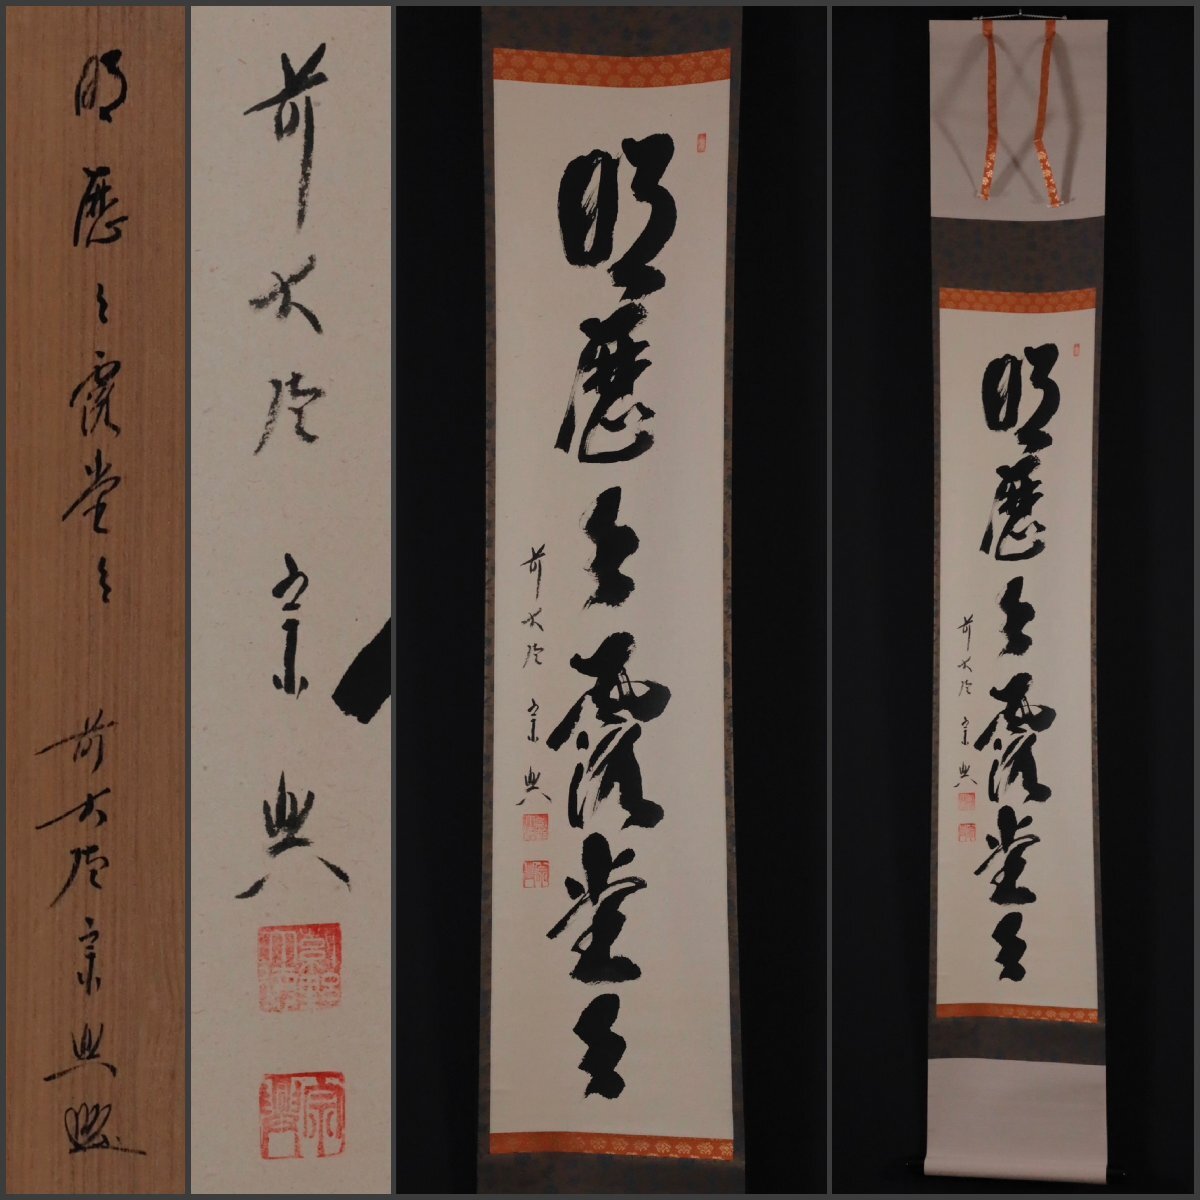 明歴々露堂々 前大徳宗興
前大徳 宗興
宗興
明歴々露堂々
前大徳 宗興
明歴々露堂々
前大徳 宗興